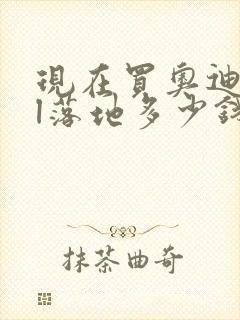 現在買奧迪
l落地多少錢
抹茶曲奇